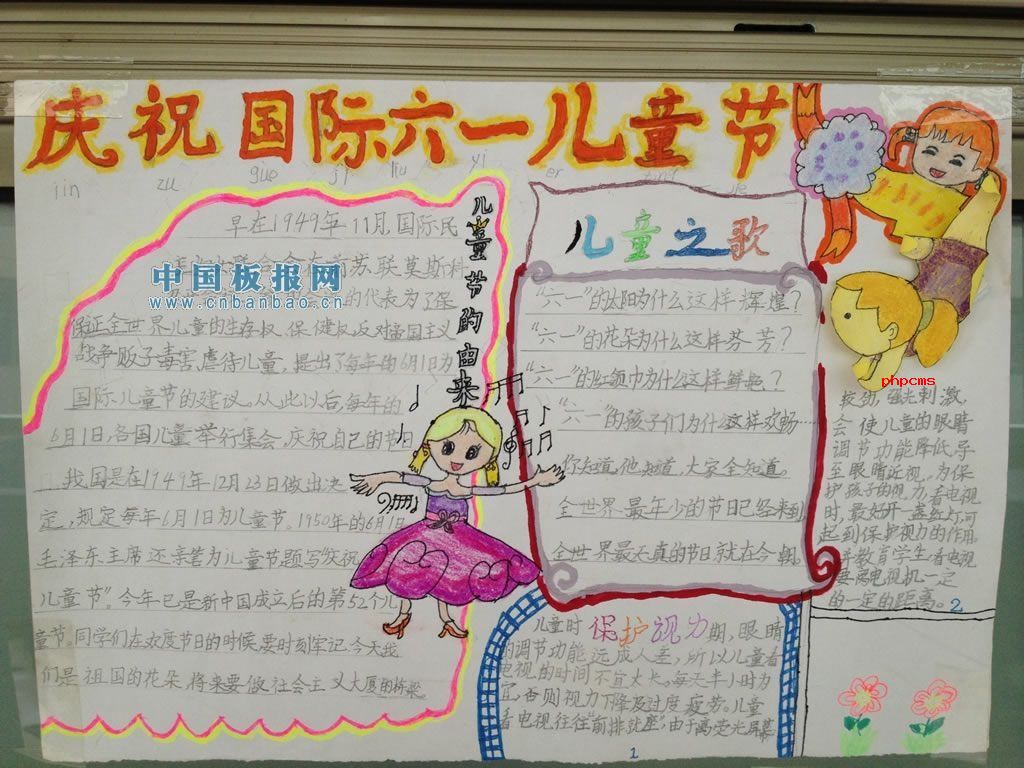 庆祝国际六一儿童节
jin zu guo ji liu yi er
儿童节的由来
早在1949年11月,国际民
苏联莫斯科
的代表为了保
保证全世界儿童的生存权、保健权,反对帝国主义
战争贩子毒害虐待儿童,提出了每年的6月1日为
国际儿童节的建议。从此以后,每年的
6月1日,各国儿童举行集会,庆祝自己的节日
我国是在1949年12月23日做出决
定,规定每年6月1日为儿童节。1950年的6月1日
毛泽东主席还亲笔为儿童节题写"庆祝
儿童节"。今年已是新中国成立后的第52个儿
童节。同学们在欢度节日的时候,要时刻牢记,今天我
们是祖国的花朵,将来要做社会主义大厦的桥梁
中国板报网
www.cnbanbao.cn
儿童之歌
"六一"的太阳为什么这样辉煌?
"六一"的花朵为什么这样芬芳?
"六一"的红领巾为什么这样鲜艳?
"六一"的孩子们为什么这样欢畅……
你知道,他知道,大家全知道。
全世界最年少的节日已经来到
全世界最天真的节日就在今朝
儿童时保护视力期,眼睛
的调节功能远成人差,所以儿童看
电视的时间不宜太长,每天半小时为
宜,否则视力下降及过度疲劳。儿童
看电视往往"前排就座",由于离荧光屏幕
1
phpcms
较劲,强光刺激,
会使儿童的眼睛
调节功能降低,导
至眼睛近视。为保
护孩子的视力,看电视
时,最好开一盏红灯,可
起到保护视力的作用
并教育学生看电视
要离电视机一定
的一定的距离。2